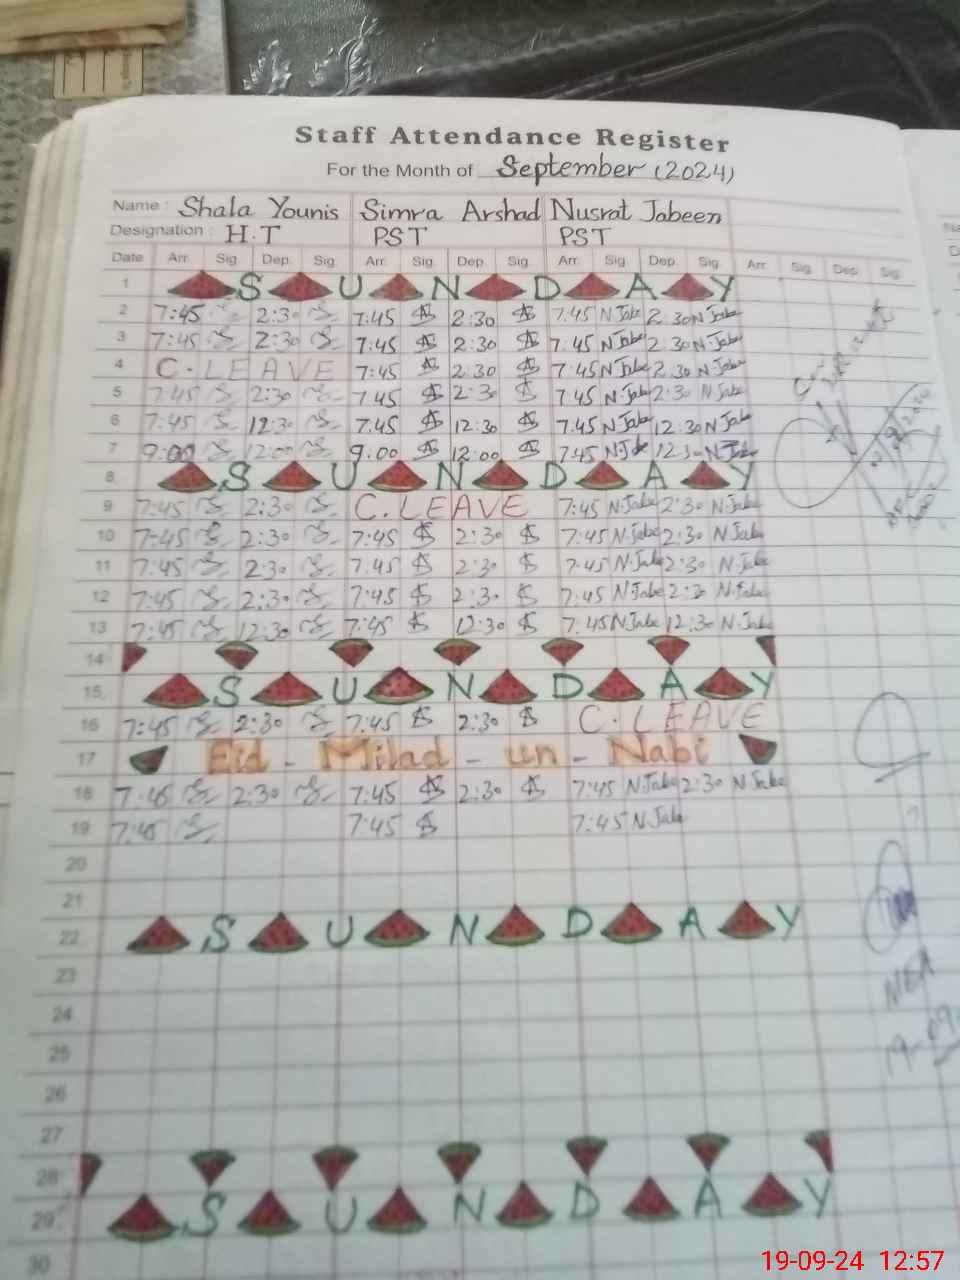 Staff Attendance Register
For the Month of September (2024)
Name : Shala Younis Simra Arshad Nusrat Jabeen
Designation : H.T PST PST
Date Arr. Sig. Dep. Sig. Arr. Sig. Dep. Sig. Arr. Sig. Dep. Sig. Arr. Sig. Dep. Sig.
1 SUNDAY
2 7:45 2:30 7:45 2:30 7:45 N Jabe 2:30 N Jabe
3 7:45 2:30 7:45 2:30 7:45 N Jabe 2:30 N Jabe
4 C.LEAVE 7:45 2:30 7:45 N Jabe 2:30 N Jabe
5 7:45 2:30 7:45 2:30 7:45 N Jabe 2:30 N Jabe
6 7:45 12:30 7:45 12:30 7:45 N Jabe 12:30 N Jabe
7 9:00 12:00 9:00 12:00 7:45 N Jabe 12:30 N Jabe
8 SUNDAY
9 7:45 2:30 C.LEAVE 7:45 N Jabe 2:30 N Jabe
10 7:45 2:30 7:45 2:30 7:45 N Jabe 2:30 N Jabe
11 7:45 2:30 7:45 2:30 7:45 N Jabe 2:30 N Jabe
12 7:45 2:30 7:45 2:30 7:45 N Jabe 2:30 N Jabe
13 7:45 12:30 7:45 12:30 7:45 N Jabe 12:30 N Jabe
14
15 SUNDAY
16 7:45 2:30 7:45 2:30 C.LEAVE
17 Eid - Milad - un - Nabi
18 7:45 2:30 7:45 2:30 7:45 N Jabe 2:30 N Jabe
19 7:45 7:45 7:45 N Jabe
20
21
22 SUNDAY
23
24
25
26
27
28
29 SUNDAY
30
MEA
19-09
19-09-24 12:57